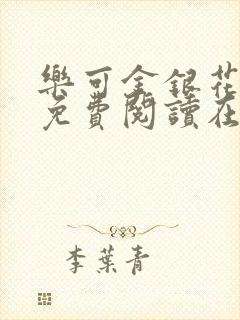 樂可金銀花
免費閱讀在
李葉青